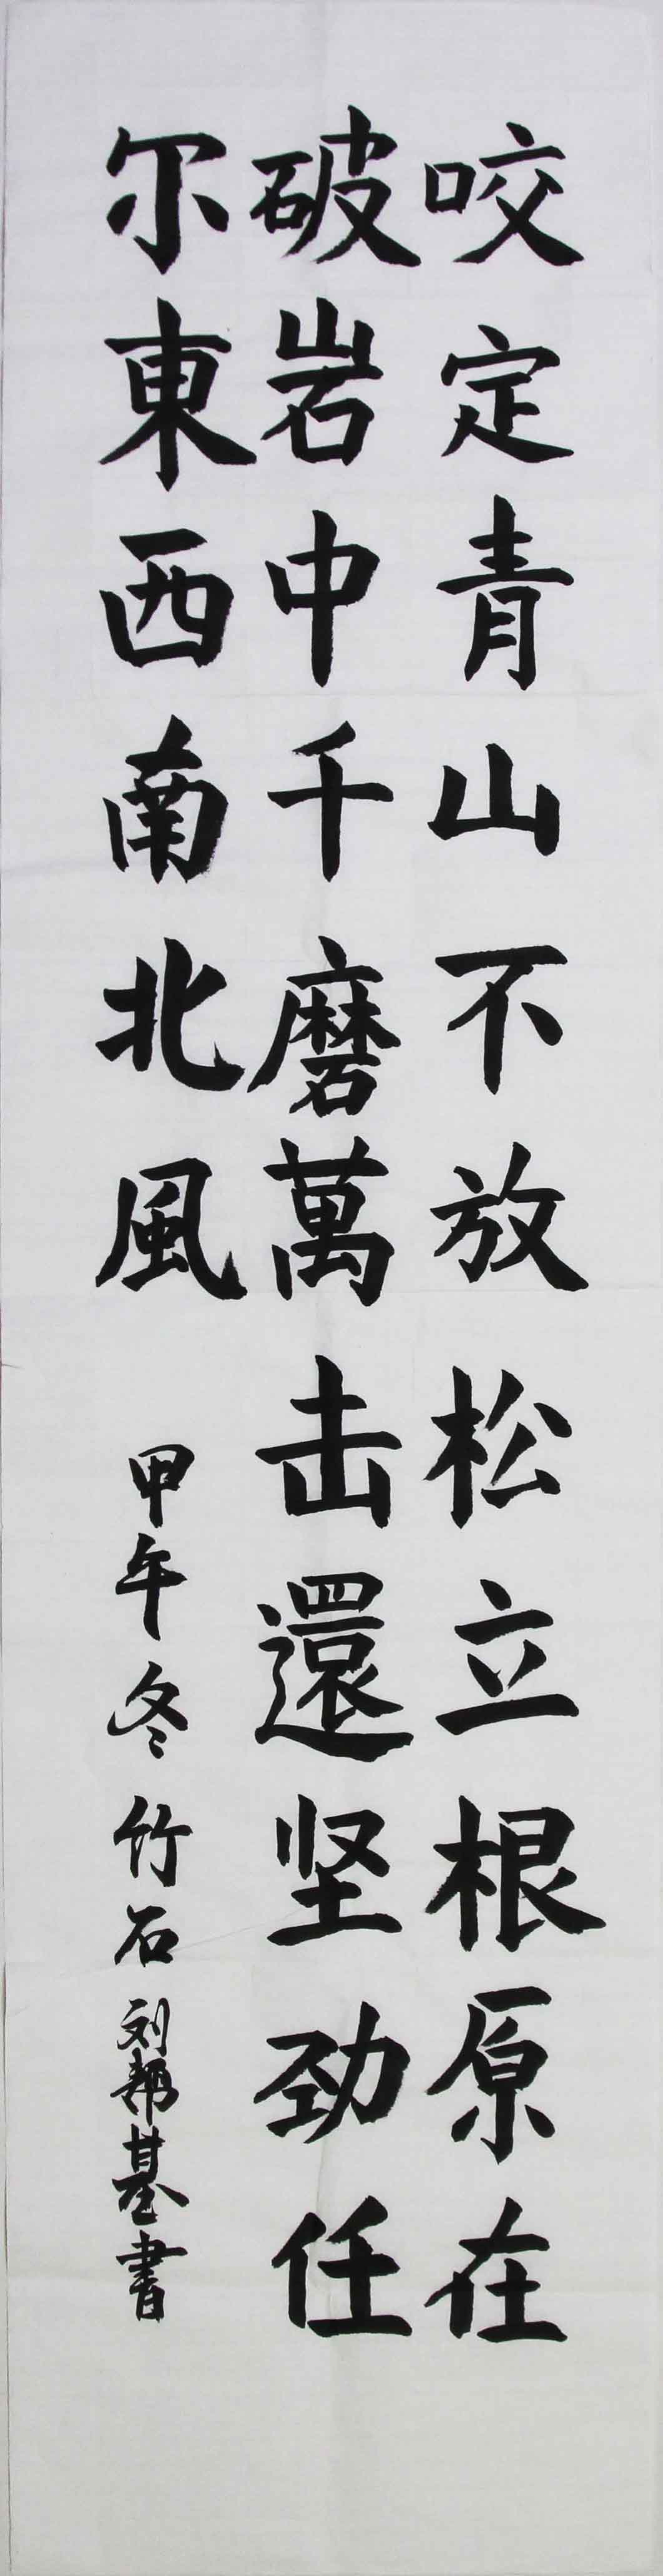 咬定青山不放松立根原在
破岩中千磨萬击還坚劲任
尔東西南北風
甲午冬竹石刘帮基書